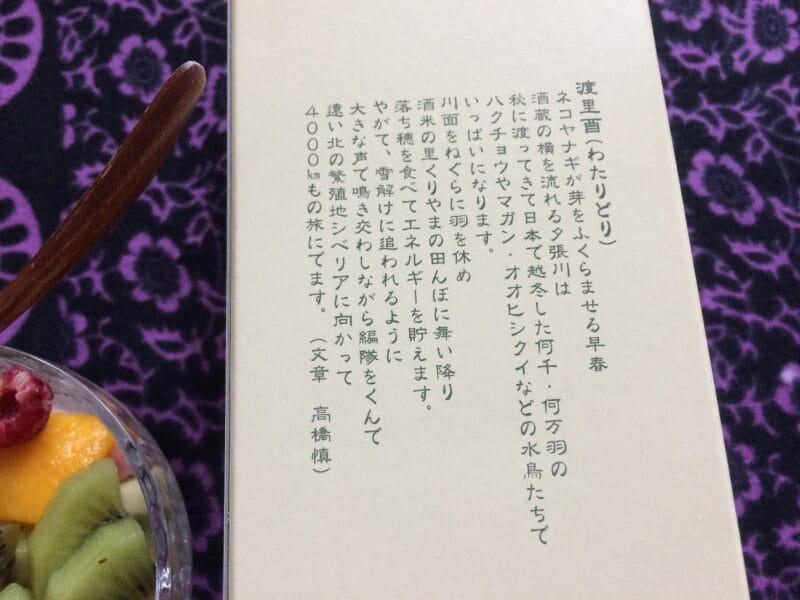 渡里酉(わたりどり)
ネコヤナギが芽をふくらませる早春
酒蔵の横を流れる夕張川は
秋に渡ってきて日本で越冬した何千・何万羽の
ハクチョウやマガン・オオヒシクイなどの水鳥たちで
いっぱいになります。
川面をねぐらに羽を休め
酒米の里くりやまの田んぼに舞い降り
落ち穂を食べてエネルギーを貯えます。
やがて、雪解けに追われるように
大きな声で鳴き交わしながら編隊をくんで
遠い北の繁殖地シベリアに向かって
4000㎞もの旅にでます。 (文章 高橋慎)